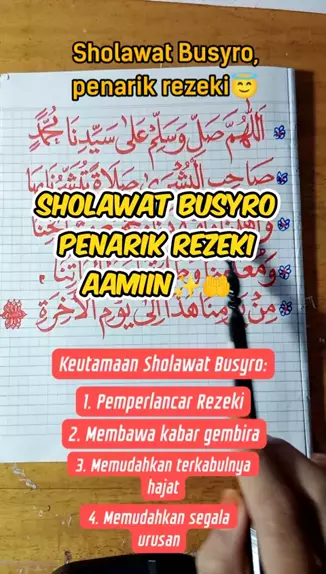 Sholawat Busyro,
penarik rezeki😇
اَللّٰهُمَّ صَلِّ وَسَلِّمْ عَلَى سَيِّدِنَا مُحَمَّدٍ
صَاحِبِ الْبُشْرَى صَلَاةً تُبَشِّرُنَا بِهَا
SHOLAWAT BUSYRO
PENARIK REZEKI
AAMIIN✨🤲
مِنْ يَوْمِنَا هٰذَا إِلَى يَوْمِ الْآخِرَةِ
Keutamaan Sholawat Busyro:
1. Pemperlancar Rezeki
2. Membawa kabar gembira
3. Memudahkan terkabulnya
hajat
4. Memudahkan segala
urusan